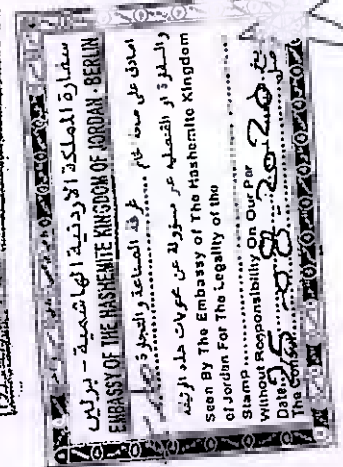 سفارة المملكة الاردنية الهاشمية - برلين
EMBASSY OF THE HASHEMITE KINGDOM OF JORDAN - BERLIN
اصادق على صحة ختم غرفة الصناعة والتجارة
والسفارة او القنصلية غير مسؤولة عن محتويات هذه الوثيقة
Seen By The Embassy of The Hashemite Kingdom
of Jordan For The Legality of the
Stamp
Without Responsibility On Our Par
Date: 25-08-2020
The Consul